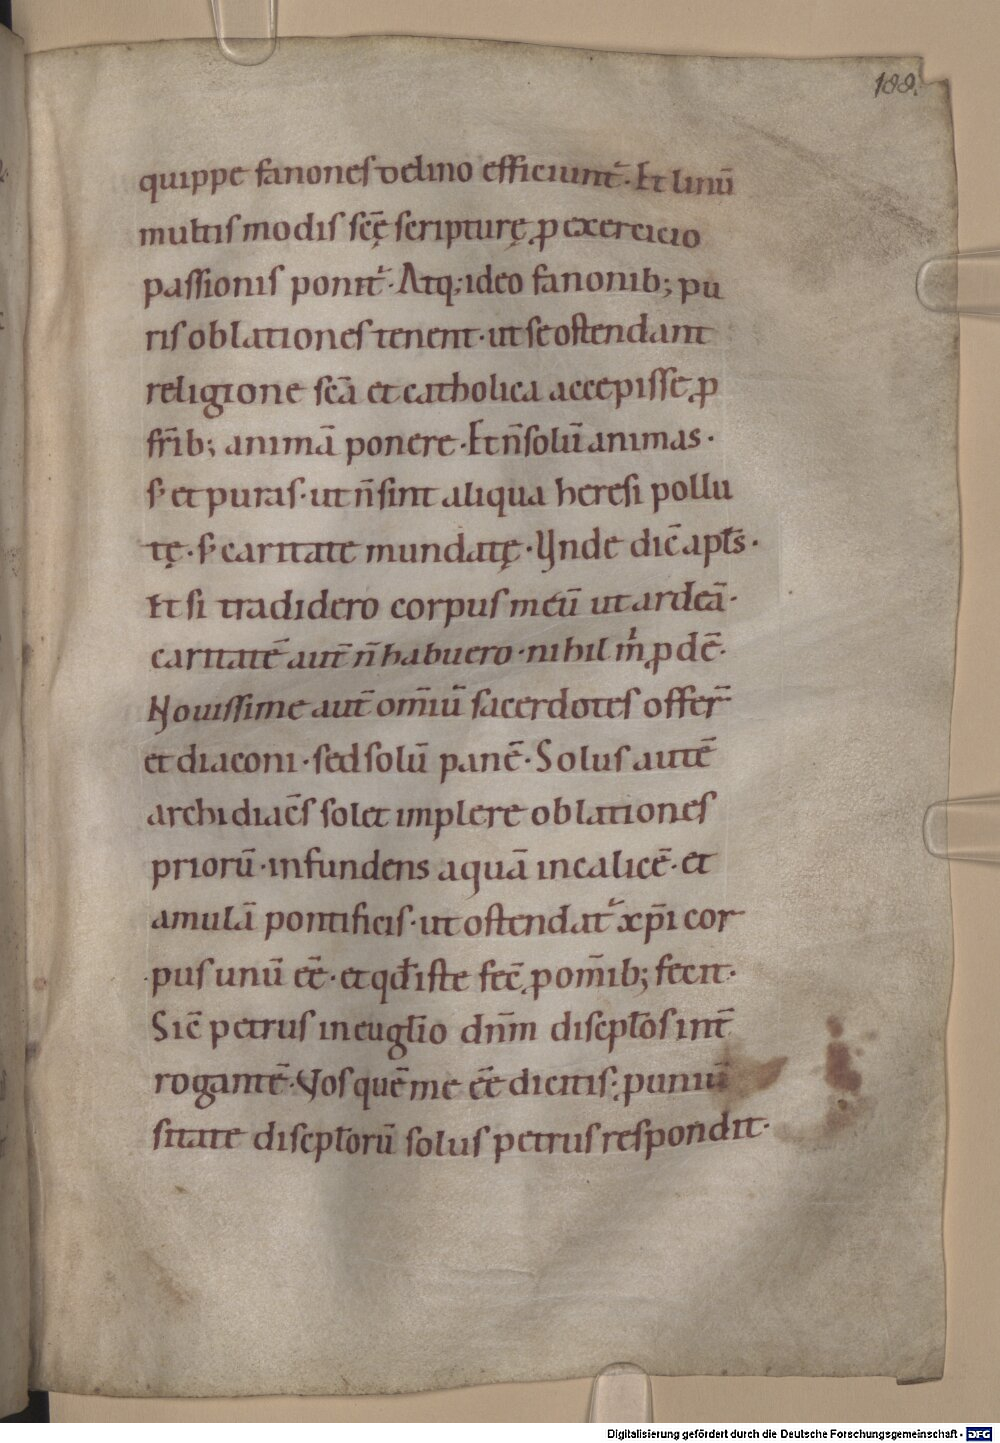 188.
quippe fanones de lino efficiunt᷑· Et linū
multis modis scę̄ scripturę ꝓ exercicio
passionis ponit᷑· Atq; ideo fanonib; pu
ris oblationes tenent· ut se ostendant
religione scā et catholica accepisse ꝓ
fr̄ib; animā ponere· Et n̄ solū animas·
s; et puras· ut n̄ sint aliqua heresi pollu
tę· s; caritate mundatę· Unde dic̄ apl̄s·
Et si tradidero corpus meū ut ardeā·
caritatē aut̄ n̄ habuero· nihil m̍ ꝓdē·
Nouissime aut̄ om̄iū sacerdotes offer̄
et diaconi· sed solū panē· Solus autē
archidiac̄s solet implere oblationes
priorū· infundens aquā in calicē· et
amulā pontificis· ut ostendat᷑ xp̄i cor
pus unū ee̅· et qđ iste fec̄ ꝓ om̄ib; fecit·
Sic̄ petrus in eugl̄io dn̄m discpl̄os int̄
rogantē· Vos quē me ee̅ dicitis; ꝓ uniū
sitate discpl̄orū solus petrus respondit·
Digitalisierung gefördert durch die Deutsche Forschungsgemeinschaft - DFG